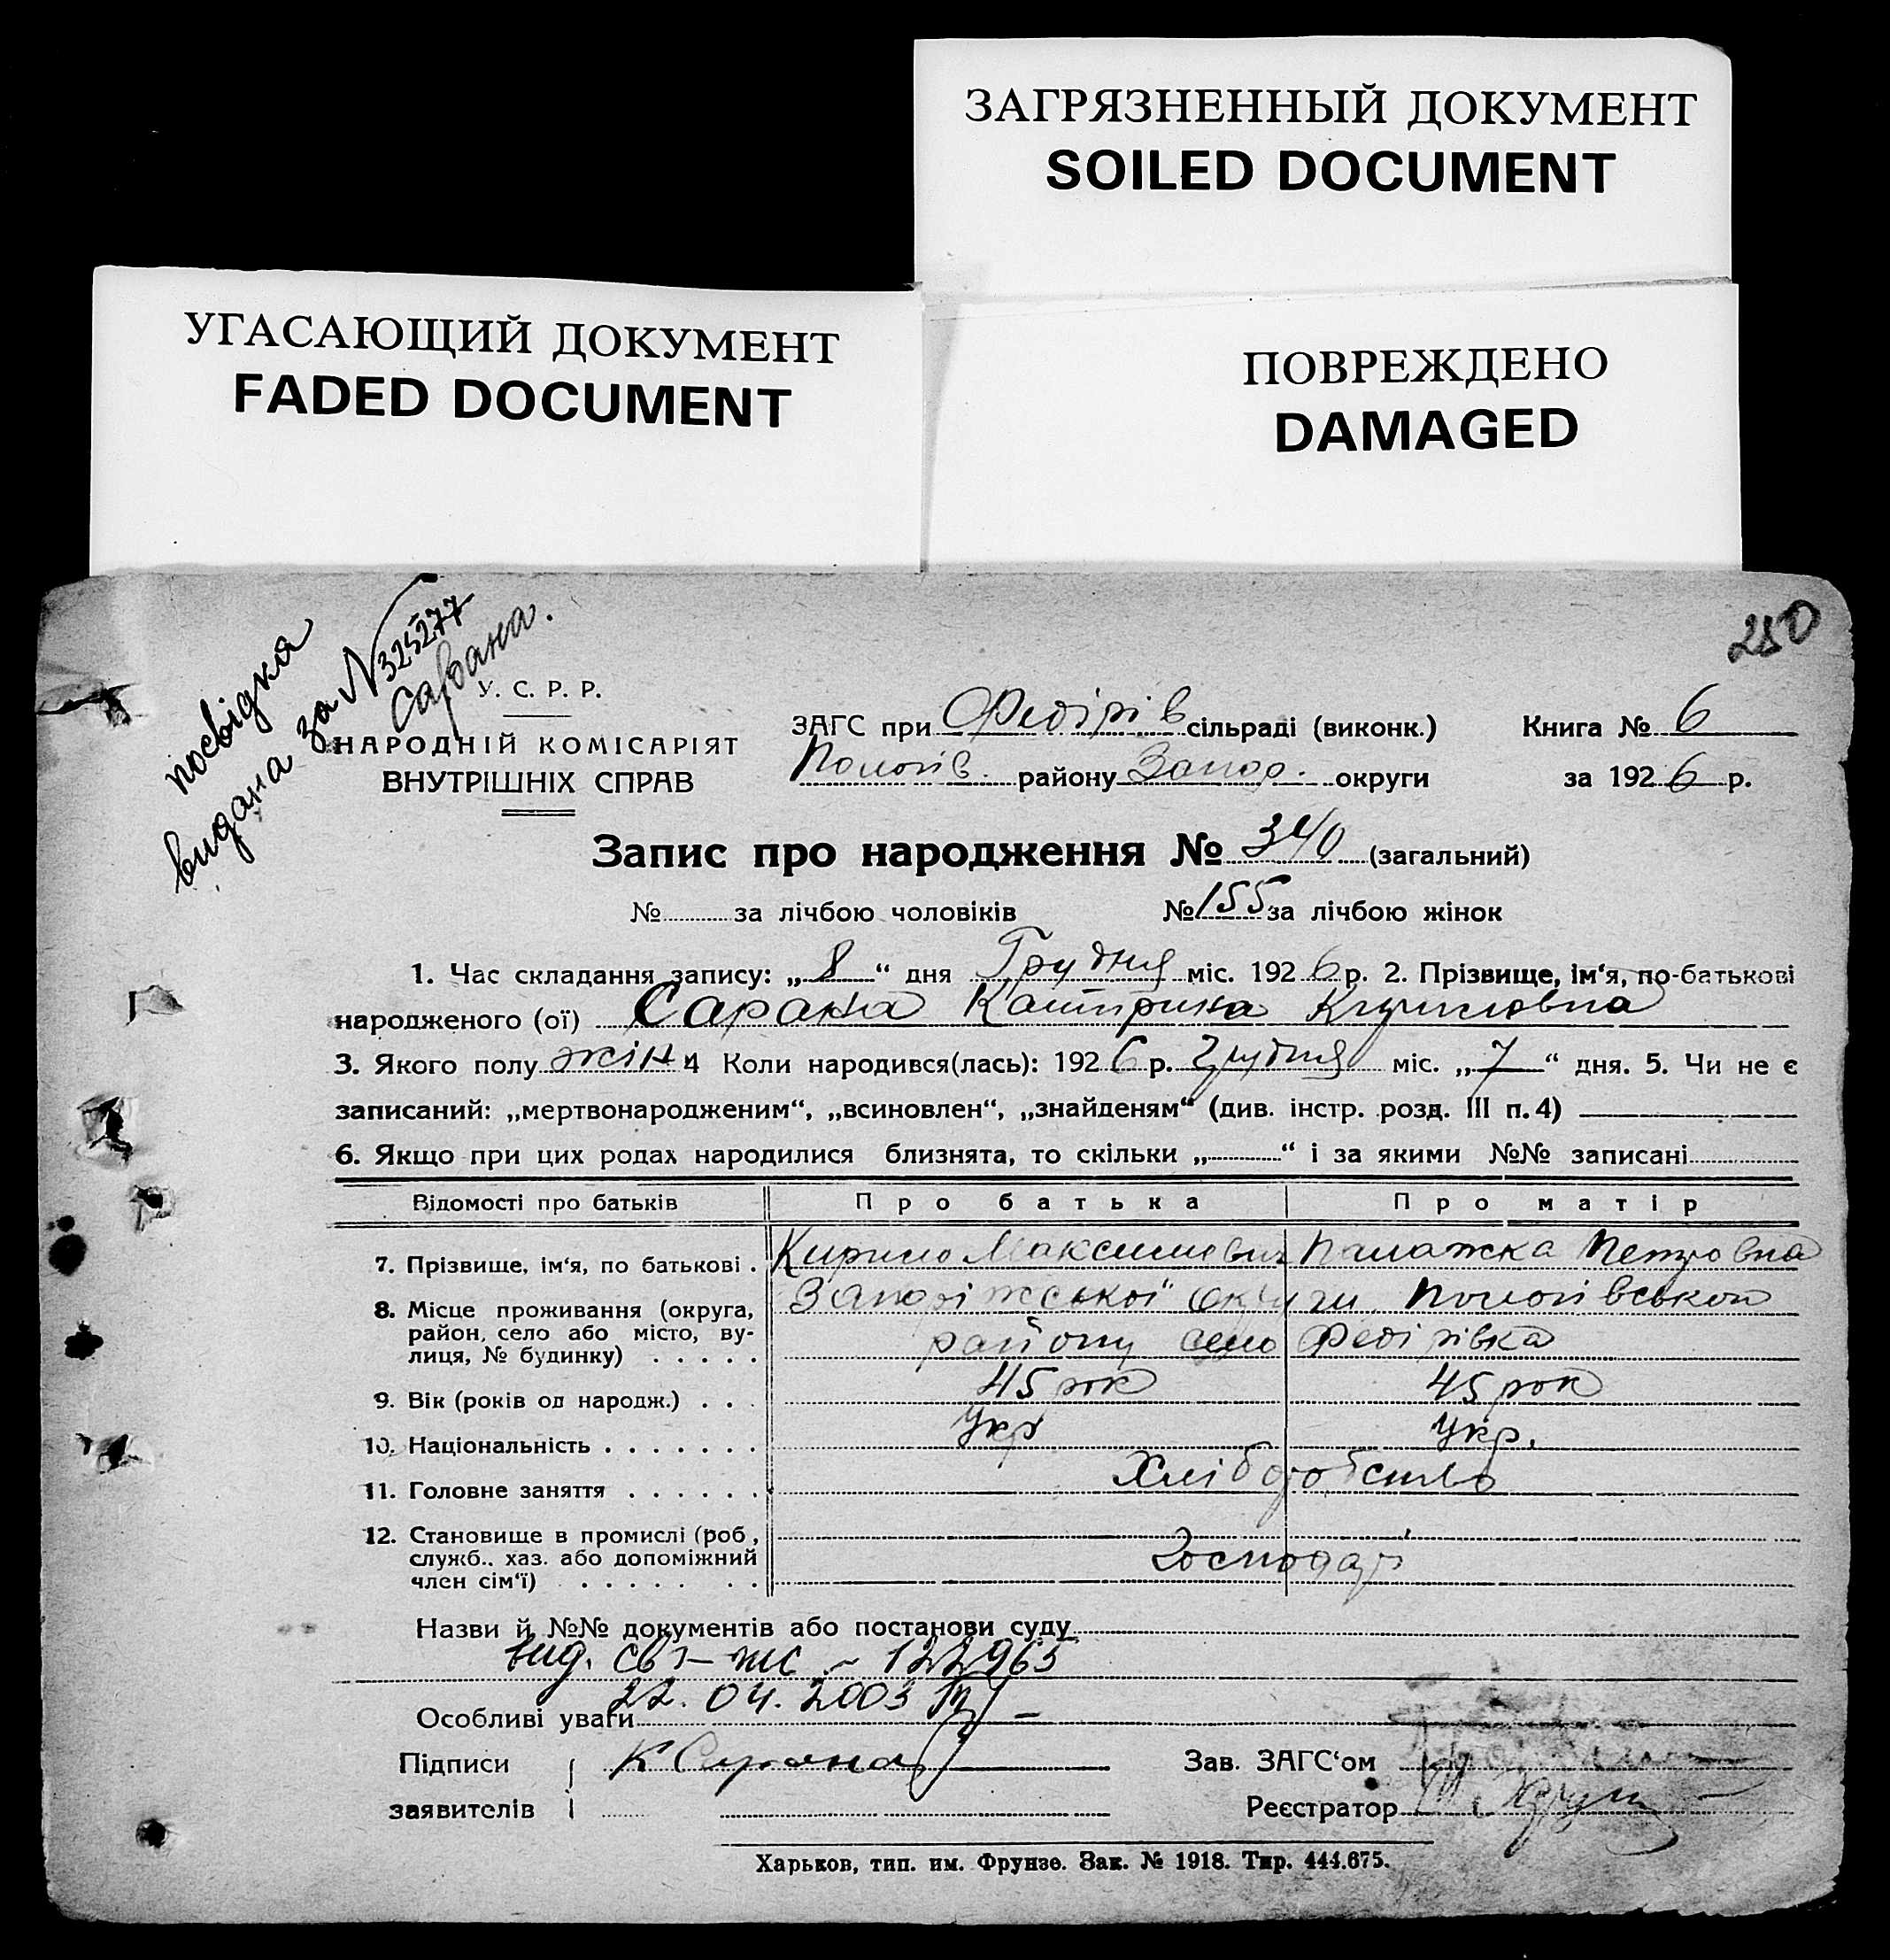 ЗАГРЯЗНЕННЫЙ ДОКУМЕНТ
SOILED DOCUMENT
УГАСАЮЩИЙ ДОКУМЕНТ
FADED DOCUMENT
ПОВРЕЖДЕНО
DAMAGED
250
посвідка
видана за N 325277
Сарана.
У. С. Р. Р.
НАРОДНІЙ КОМІСАРІЯТ
ВНУТРІШНІХ СПРАВ
ЗАГС при Федірів сільраді (виконк.) Книга № 6
Пологів. району Запор. округи за 1926 р.
Запис про народження № 340 (загальний)
№ за лічбою чоловіків № 155 за лічбою жінок
1. Час складання запису: „8“ дня Грудня міс. 1926 р. 2. Прізвище, ім‘я, по-батькові
народженого (ої) Сарана Катрина Кириловна
3. Якого полу жін. 4 Коли народився(лась): 1926 р. Грудня міс. „7“ дня. 5. Чи не є
записаний: „мертвонародженим“, „всиновлен“, „знайденям“ (див. інстр. розд. III п. 4)
6. Якщо при цих родах народилися близнята, то скільки „ “ і за якими №№ записані
Відомості про батьків Про батька Про матір
7. Прізвище, ім‘я, по батькові . Кирило Максимович Палажка Петровна
8. Місце проживання (округа, Запоріжської округи Пологівського
район, село або місто, ву- району село Федірівка
лиця, № будинку) . . . . .
9. Вік (років од народж.) . . . 45 рок 45 рок
10. Національність . . . . . . . Укр Укр.
11. Головне заняття . . . . . . Хліборобство
12. Становище в промислі (роб,
служб., хаз. або допоміжний Господарі
член сім‘ї) . . . . . . .
Назви й №№ документів або постанови суду
вид. св-жс – 122963
22.04.2003
Особливі уваги
Підписи К Сарана Зав. ЗАГС‘ом
заявителів Реєстратор
Харьков, тип. им. Фрунзе. Зак. № 1918. Тир. 444.675.